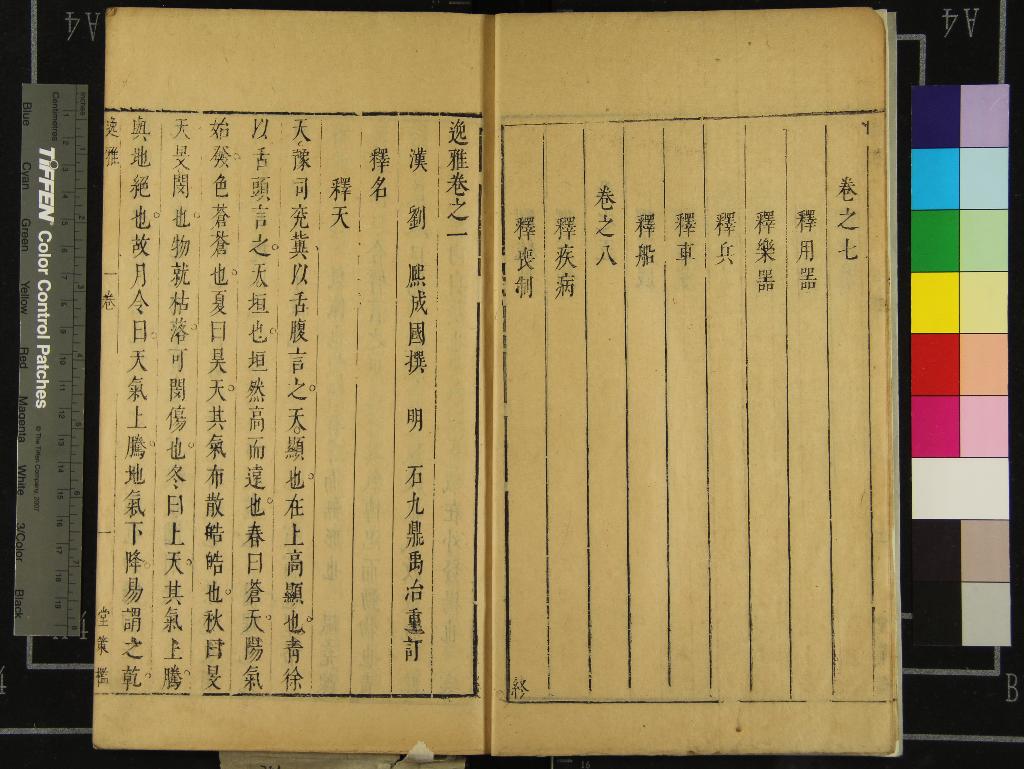 卷之七
釋用器
釋樂器
釋兵
釋車
釋船
卷之八
釋疾病
釋喪制
終
逸雅卷之一
漢 劉 熈成國撰 明 石九鼎禹冶重訂
釋名
釋天
天豫司兖冀以舌腹言之天顯也在上高顯也青徐
以舌頭言之天垣也垣然高而遠也春曰蒼天陽氣
始發色蒼蒼也夏曰昊天其氣布散皓皓也秋曰旻
天旻閔也物就枯落可閔傷也冬曰上天其氣上騰
與地絕也故月令曰天氣上騰地氣下降易謂之乾
逸雅
一卷
一
堂策檻
A4
A4
B
Inches
Centimetres
TIFFEN Color Control Patches
© The Tiffen Company, 2007
Blue
Cyan
Green
Yellow
Red
Magenta
White
3/Color
Black